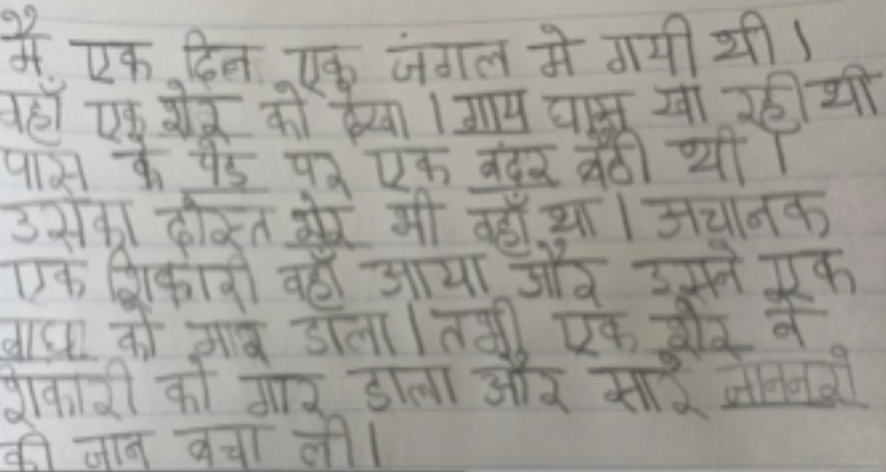 मैं एक दिन एक जंगल मे गयी थी।
वहाँ एक शेर को देखा। गाय घास खा रही थी
पास के पेड पर एक बंदर बैठी थी।
उसका दोस्त शेर भी वहाँ था। अचानक
एक शिकारी वहाँ आया और उसने एक
बाघ को मार डाला। तभी एक शेर ने
शिकारी को मार डाला और सारे जानवरो
की जान बचा ली।